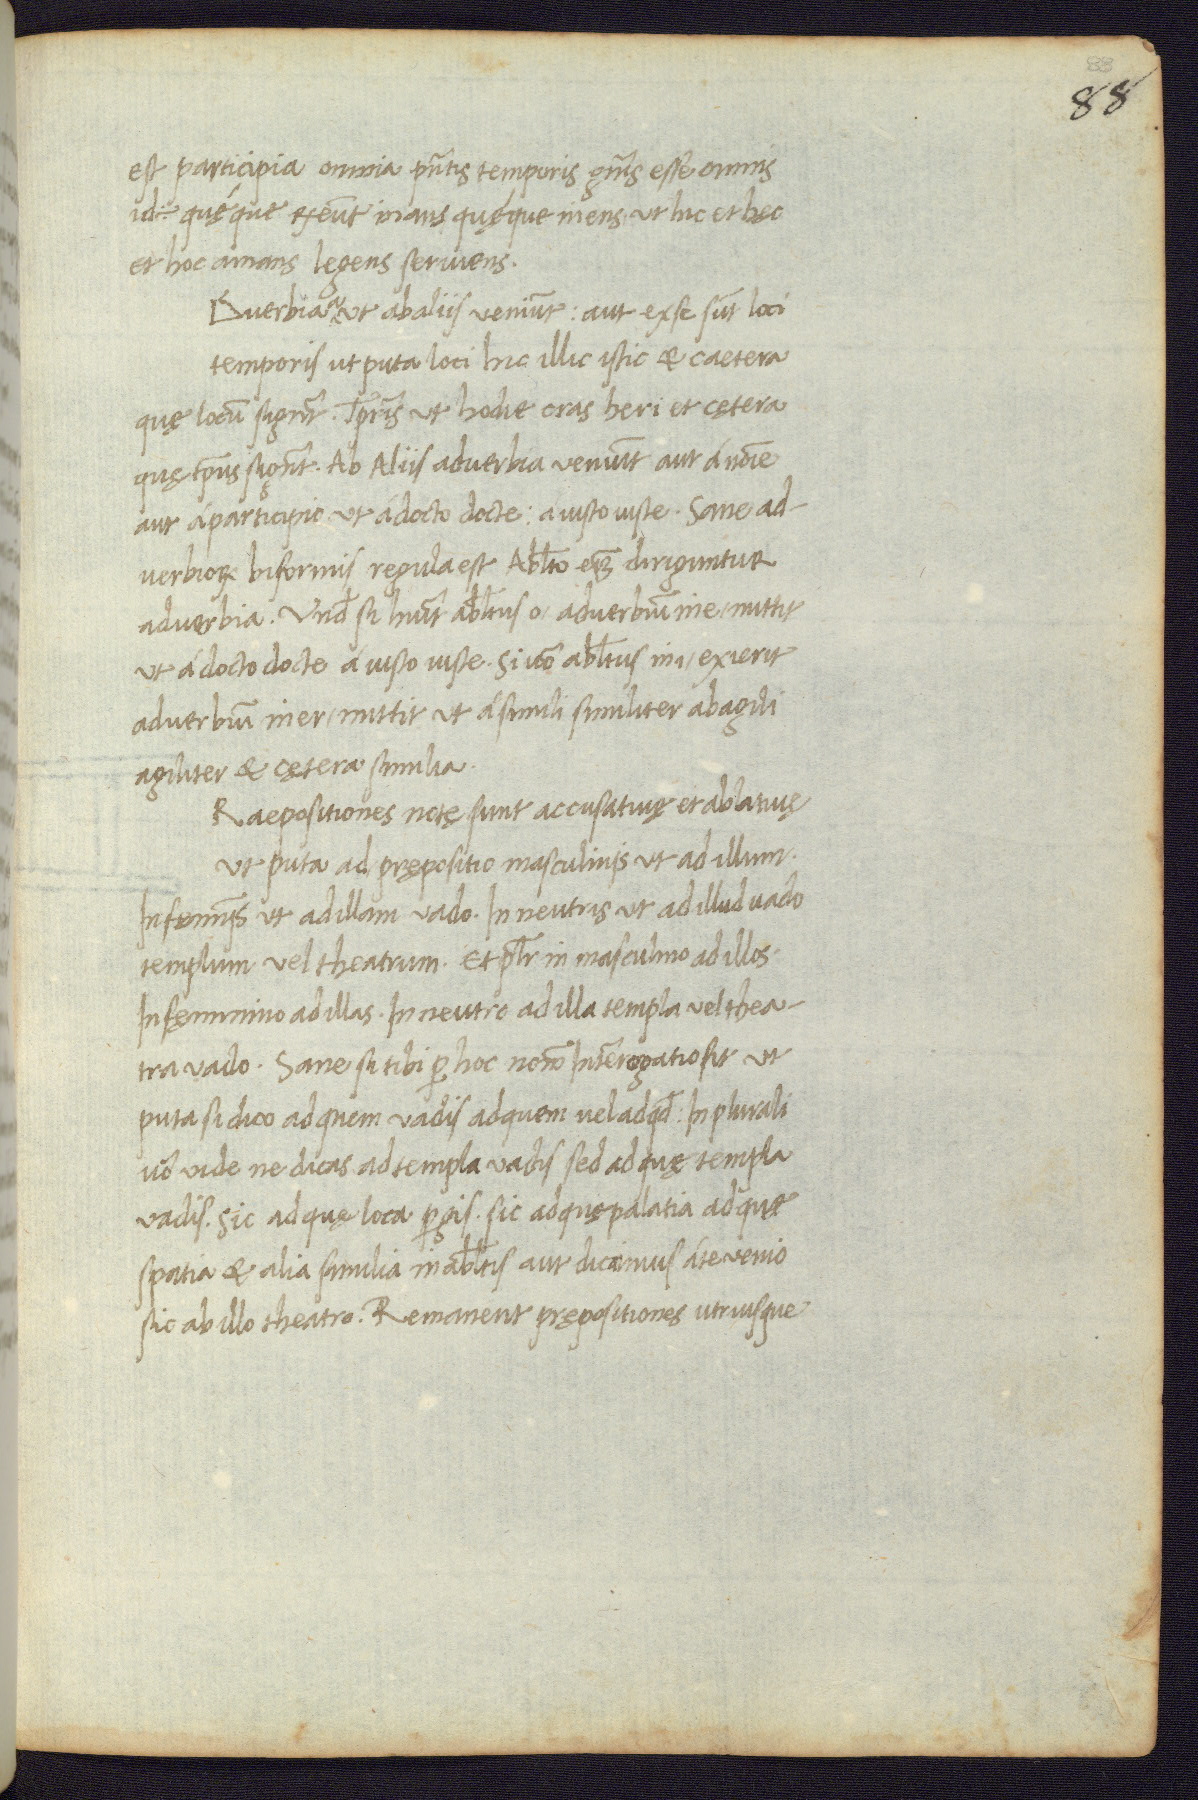 88
est participia omnia pñtis temporis gñis esse omnis
id ÷ quęque exeūt in ans quęque in ens, ut hic et hęc
et hoc amans legens scrivens.
Duerbia aut ab aliis veniūt: aut ex se sūt loci
temporis ut puta loci hic illic istic & caetera
quę locū signñt. Tp̄ris ut hodie cras heri et cętera
quę tp̄us signñt. Ab Aliis adverbia veniūt aut á noīe
aut á participio ut á docto docte: á iusto iuste. Sane ad-
verbioꝝ biformis regula est Abłto diriguntur
adverbia. Und si hūt abłtus o, adverbiū in e, mittit
ut á docto docte á iusto iuste. Si uō abłtus in i, exierit
adverbiū in er, mittit ut á simili similiter ab agili
agiliter & cętera similia.
Raepositiones notę sunt accusativę et ablativę
ut puta ad prępositio masculinis ut ad illum.
In femīs ut ad illam vado. In neutris ut ad illud uado
templum vel theatrum. Et płr in masculino ad illos.
In fęminino ad illas. In neutro ad illa templa vel thea-
tra vado. Sane si tibi ꝑ hoc noīo Int̄erogatio sit ut
puta si dico ad quem vadis ad quem uel ad qđ: In plurali
uō vide ne dicas ad templa vadis sed ad quę templa
vadis. Sic ad quę loca ꝑgis. sic ad quę palatia ad quę
spatia & alia similia in abłtis aut dicimus á te venio
sic ab illo theatro. Remanent prępositiones utriusque